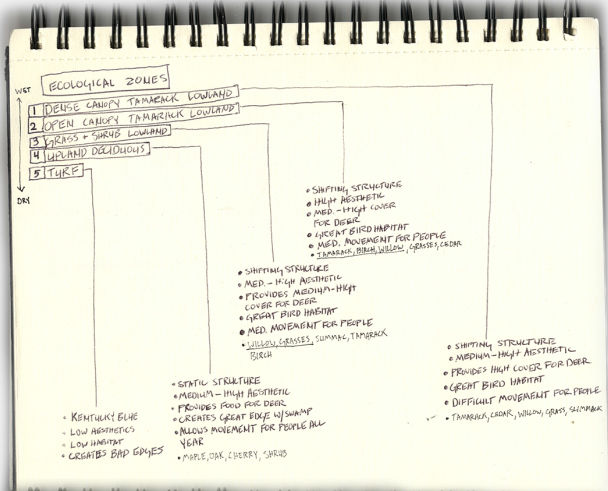 ECOLOGICAL ZONES
WET
1 DENSE CANOPY TAMARACK LOWLAND
2 OPEN CANOPY TAMARACK LOWLAND
3 GRASS + SHRUB LOWLAND
4 UPLAND DECIDUOUS
5 TURF
DRY
• SHIFTING STRUCTURE
• HIGH AESTHETIC
• MED. - HIGH COVER
FOR DEER
• GREAT BIRD HABITAT
• MED. MOVEMENT FOR PEOPLE
• TAMARACK, BIRCH, WILLOW, GRASSES, CEDAR
• SHIFTING STRUCTURE
• MED. - HIGH AESTHETIC
• PROVIDES MEDIUM-HIGH
COVER FOR DEER
• GREAT BIRD HABITAT
• MED. MOVEMENT FOR PEOPLE
• WILLOW, GRASSES, SUMMAC, TAMARACK
BIRCH
• SHIFTING STRUCTURE
• MEDIUM-HIGH AESTHETIC
• PROVIDES HIGH COVER FOR DEER
• GREAT BIRD HABITAT
• DIFFICULT MOVEMENT FOR PEOPLE
• TAMARACK, CEDAR, WILLOW, GRASS, SUMMACK
• STATIC STRUCTURE
• MEDIUM-HIGH AESTHETIC
• PROVIDES FOOD FOR DEER
• CREATES GREAT EDGE W/SWAMP
• ALLOWS MOVEMENT FOR PEOPLE ALL
YEAR
• MAPLE, OAK, CHERRY, SHRUB
• KENTUCKY BLUE
• LOW AESTHETICS
• LOW HABITAT
• CREATES BAD EDGES